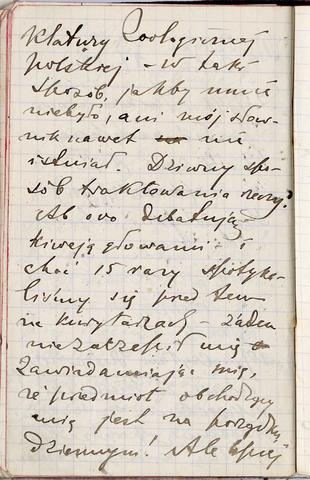 klatury Zoologicznej
polskiej – w taki
sposób, jakby mnie
niebyło, ani mój słow-
nik nawet nie
istniał. Dziwny spo-
sób traktowania rzeczy!
Ab ovo debatują
kiwają głowami i
choć 15 razy spotyka-
liśmy się przed tem
na kurytarzach – żaden
niezaczepił mię
zawiadamiając mię,
że przedmiot obchodzący
mię jest na porządku
dziennym! Ale lepiej